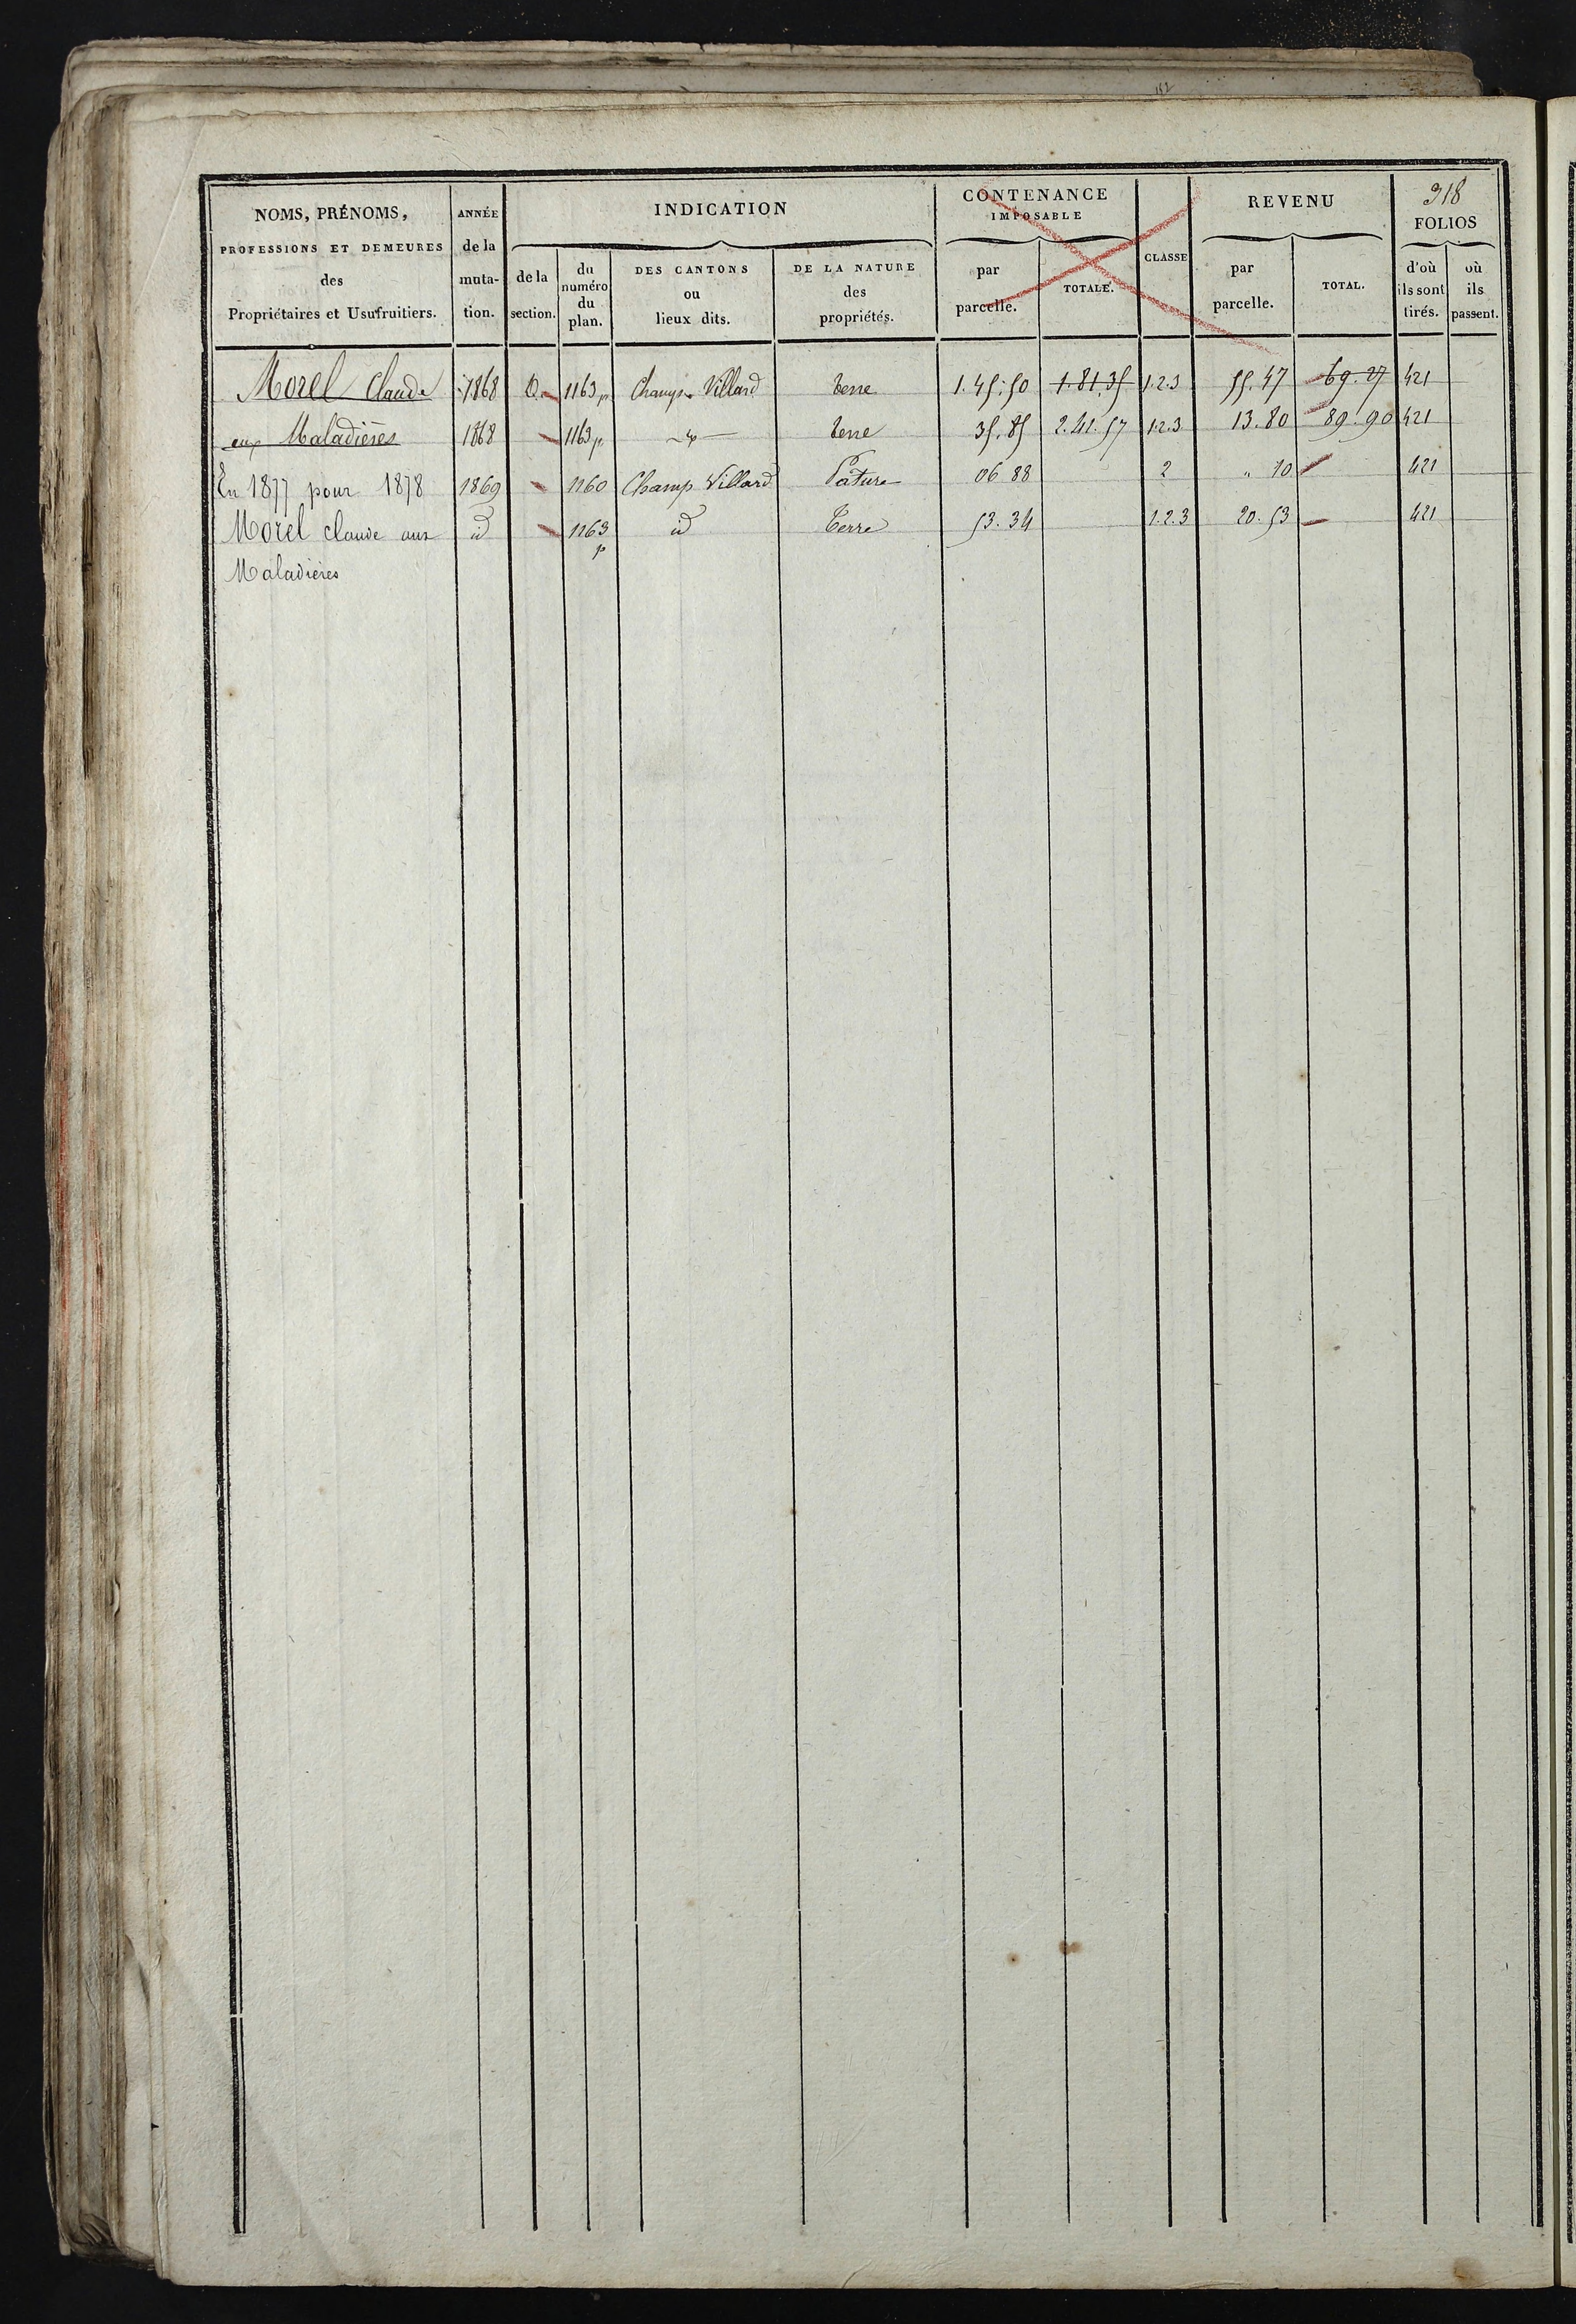 152
NOMS, PRÉNOMS, PROFESSIONS ET DEMEURES des Propriétaires et Usufruitiers. | ANNÉE de la mutation. | INDICATION | CONTENANCE IMPOSABLE | CLASSE | REVENU | 318 FOLIOS
de la section. | du numéro du plan. | DES CANTONS ou lieux dits. | DE LA NATURE des propriétés. | par parcelle. | TOTALE. | par parcelle. | TOTAL. | d'où ils sont tirés. | où ils passent.
Morel Claude | 1868 | D | 1163 p | Champ Villard | terre | 1.45.50 | 1.81.35 | 1.2.3 | 55.47 | 69.27 | 421
aux Maladières | 1868 | 1163 p | terre | 35.85 | 2.41.57 | 1.2.3 | 13.80 | 89.90 | 421
En 1877 pour 1878 | 1869 | 1160 | Champ Villard | Pature | 06 88 | 2 | " 10 | 421
Morel claude aux | id | 1163 p | id | Terre | 53.34 | 1.2.3 | 20.53 | 421
Maladières